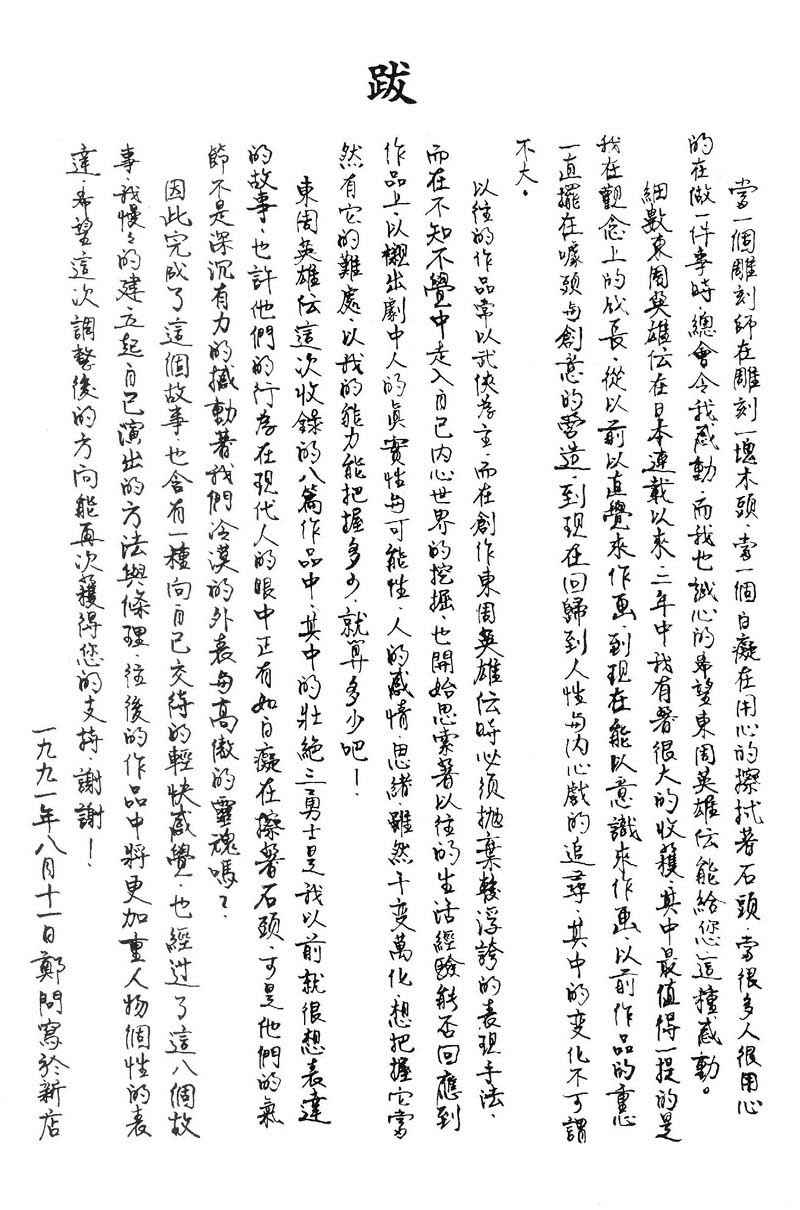 跋
當一個雕刻師在雕刻一塊木頭，當一個白癡在用心的擦拭著石頭，當很多人很用心
的在做一件事時，總會令我感動，而我也誠心的希望東周英雄伝能給您這種感動。
細數東周英雄伝在日本連載以來，二年中我有著很大的收獲其中最值得一提的是
我在觀念上的成長，從以前以直覺來作画，到現在能以意識來作画，以前作品的重心
一直擺在噱頭与創意的營造，到現在回歸到人性与內心戲的追尋，其中的变化不可謂
不大。
以往的作品常以武俠為主，而在創作東周英雄伝時必須拋棄較浮誇的表現手法，
而在不知不覺中走入自己內心世界的挖掘，也開始思索著以往的生活經驗能否回應到
作品上，以襯出劇中人的真實性与可能性，人的感情，思緒，雖然千变萬化，想把握它當
然有它的難處，以我的能力能把握多少，就算多少吧！
東周英雄伝這次收錄的八篇作品中，其中的壯絕三勇士是我以前就很想表達
的故事，也許他們的行為在現代人的眼中正有如白癡在擦著石頭，可是他們的氣
節不是深沉有力的撼動著我們冷漠的外表与高傲的靈魂嗎？
因此完成了這個故事也含有一種向自己交待的輕快感覺，也經过了這八個故
事，我慢々的建立起自己演出的方法與條理，往後的作品中將更加重人物個性的表
達，希望這次調整後的方向能再次獲得您的支持，謝謝！
一九九一年八月十一日鄭問寫於新店